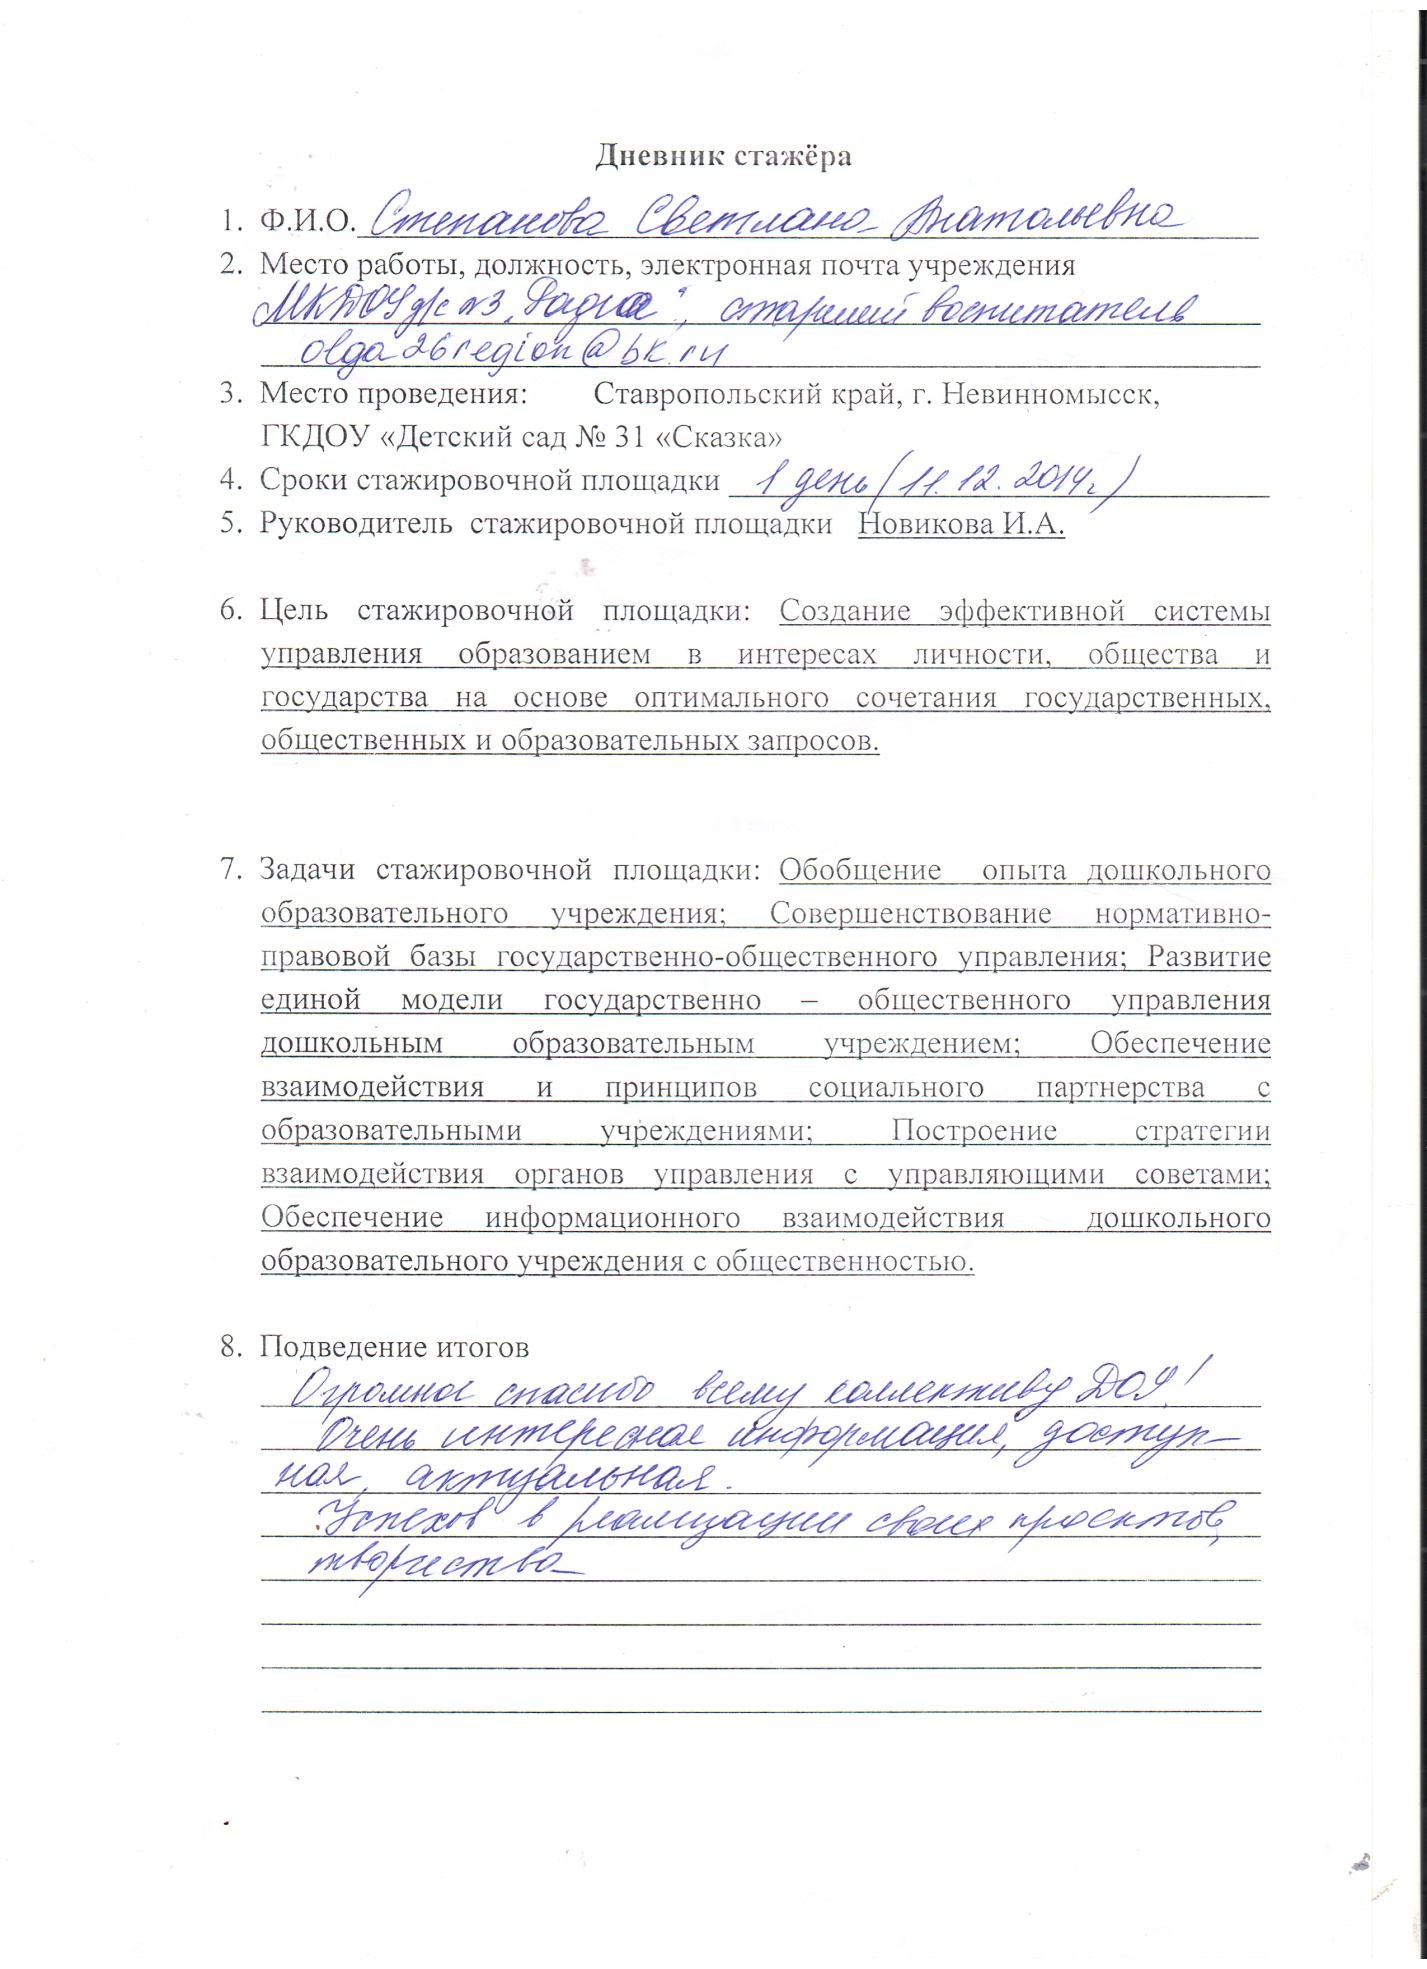 Дневник стажёра
1. Ф.И.О. Степанова Светлана Анатольевна
2. Место работы, должность, электронная почта учреждения
МКДОУ д/с №3 „ ", старший воспитатель
olga26region@bk.ru
3. Место проведения: Ставропольский край, г. Невинномысск,
ГКДОУ «Детский сад № 31 «Сказка»
4. Сроки стажировочной площадки 1 день (11.12.2014г)
5. Руководитель стажировочной площадки Новикова И.А.
6. Цель стажировочной площадки: Создание эффективной системы
управления образованием в интересах личности, общества и
государства на основе оптимального сочетания государственных,
общественных и образовательных запросов.
7. Задачи стажировочной площадки: Обобщение опыта дошкольного
образовательного учреждения; Совершенствование нормативно-
правовой базы государственно-общественного управления; Развитие
единой модели государственно – общественного управления
дошкольным образовательным учреждением; Обеспечение
взаимодействия и принципов социального партнерства с
образовательными учреждениями; Построение стратегии
взаимодействия органов управления с управляющими советами;
Обеспечение информационного взаимодействия дошкольного
образовательного учреждения с общественностью.
8. Подведение итогов
Огромное спасибо всему коллективу ДОУ!
Очень интересная информация, доступ-
ная, актуальная.
Успехов в реализации своих проектов,
творчества